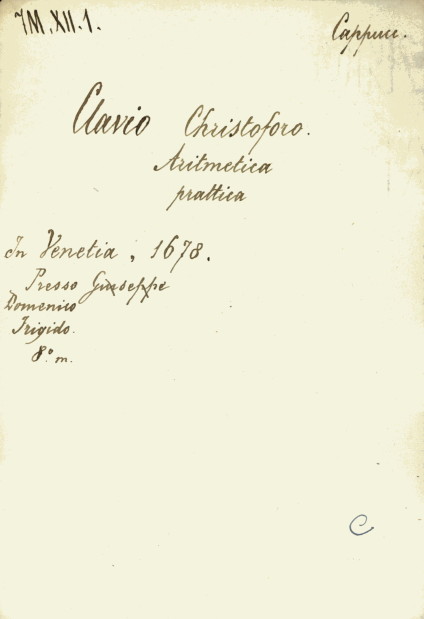 7M.XII.1.
Cappucc.
Clavio Christoforo.
Aritmetica
prattica
In Venetia, 1678.
Presso Giuseppe
Domenico
Frigido.
8.° m.
C